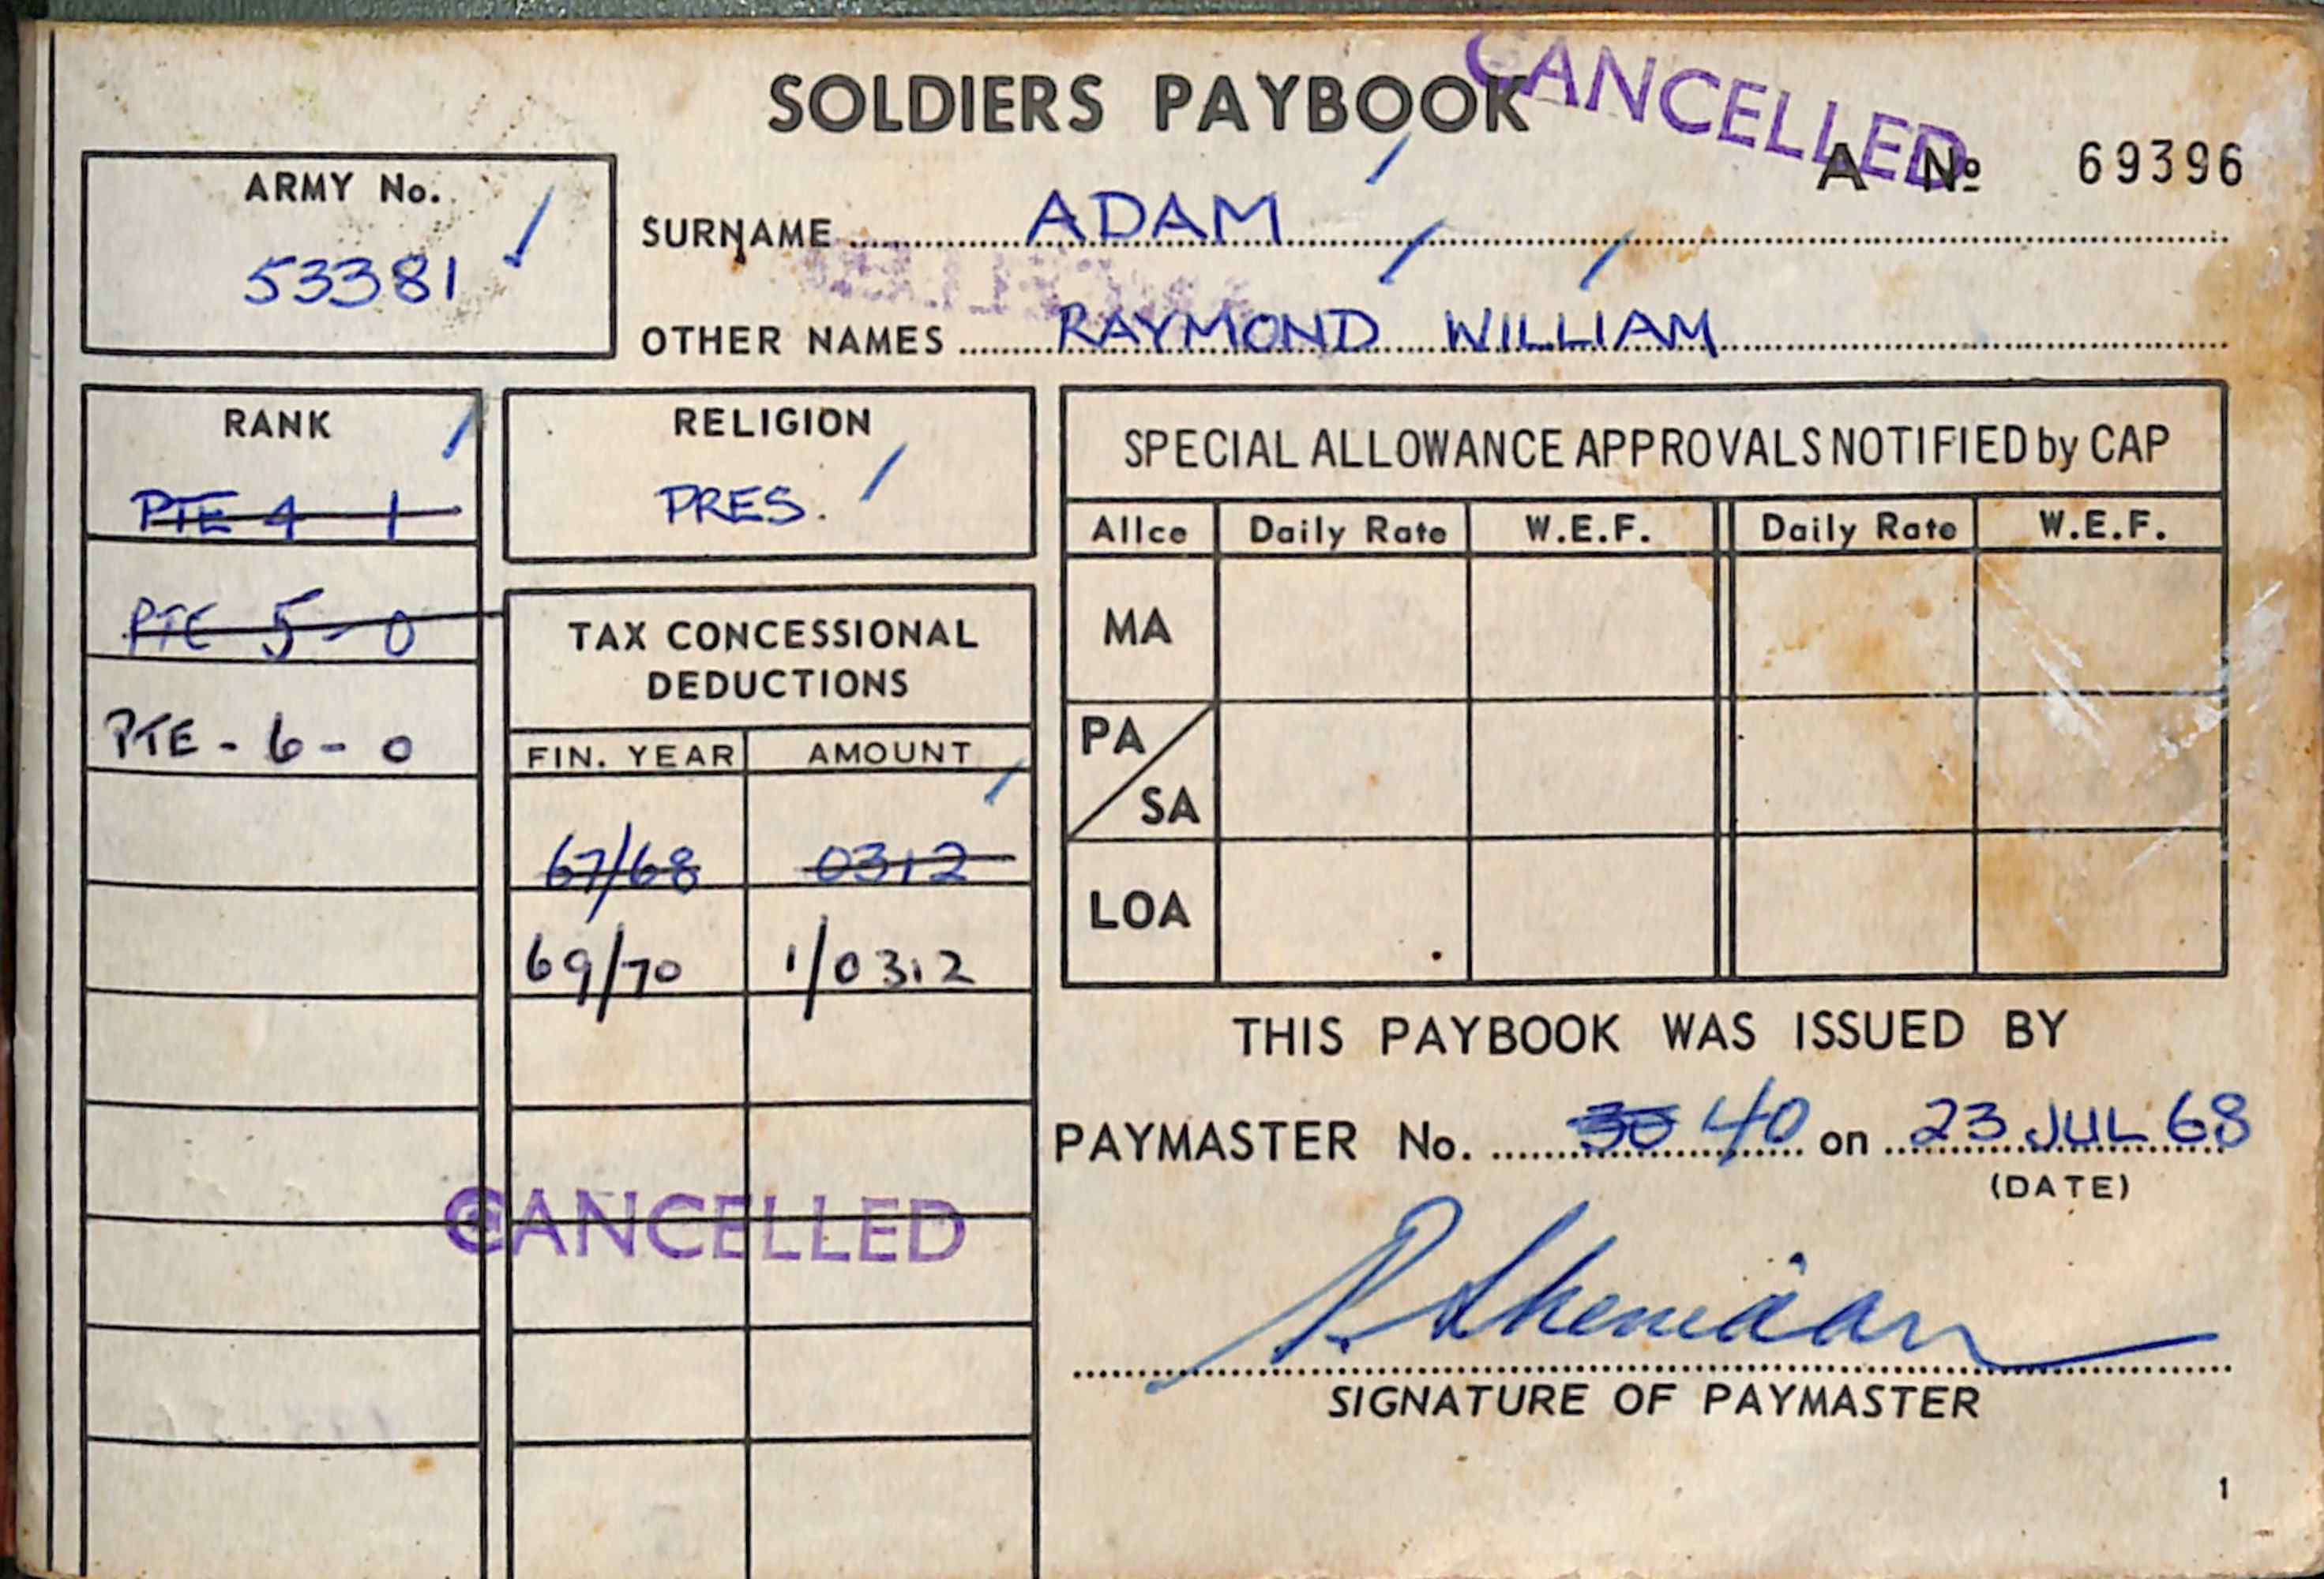 CANCELLED
SOLDIERS PAYBOOK
A No 69396
ARMY No.
53381
SURNAME ADAM
OTHER NAMES RAYMOND WILLIAM
RANK
PTE 4 1
PTE 5-0
PTE - 6 - 0
RELIGION
PRES.
TAX CONCESSIONAL
DEDUCTIONS
FIN. YEAR AMOUNT
67/68 0312
69/70 1/03.2
CANCELLED
SPECIAL ALLOWANCE APPROVALS NOTIFIED by CAP
Allce Daily Rate W.E.F. Daily Rate W.E.F.
MA
PA/SA
LOA
THIS PAYBOOK WAS ISSUED BY
PAYMASTER No. 40 on 23 JUL 68
(DATE)
SIGNATURE OF PAYMASTER
1